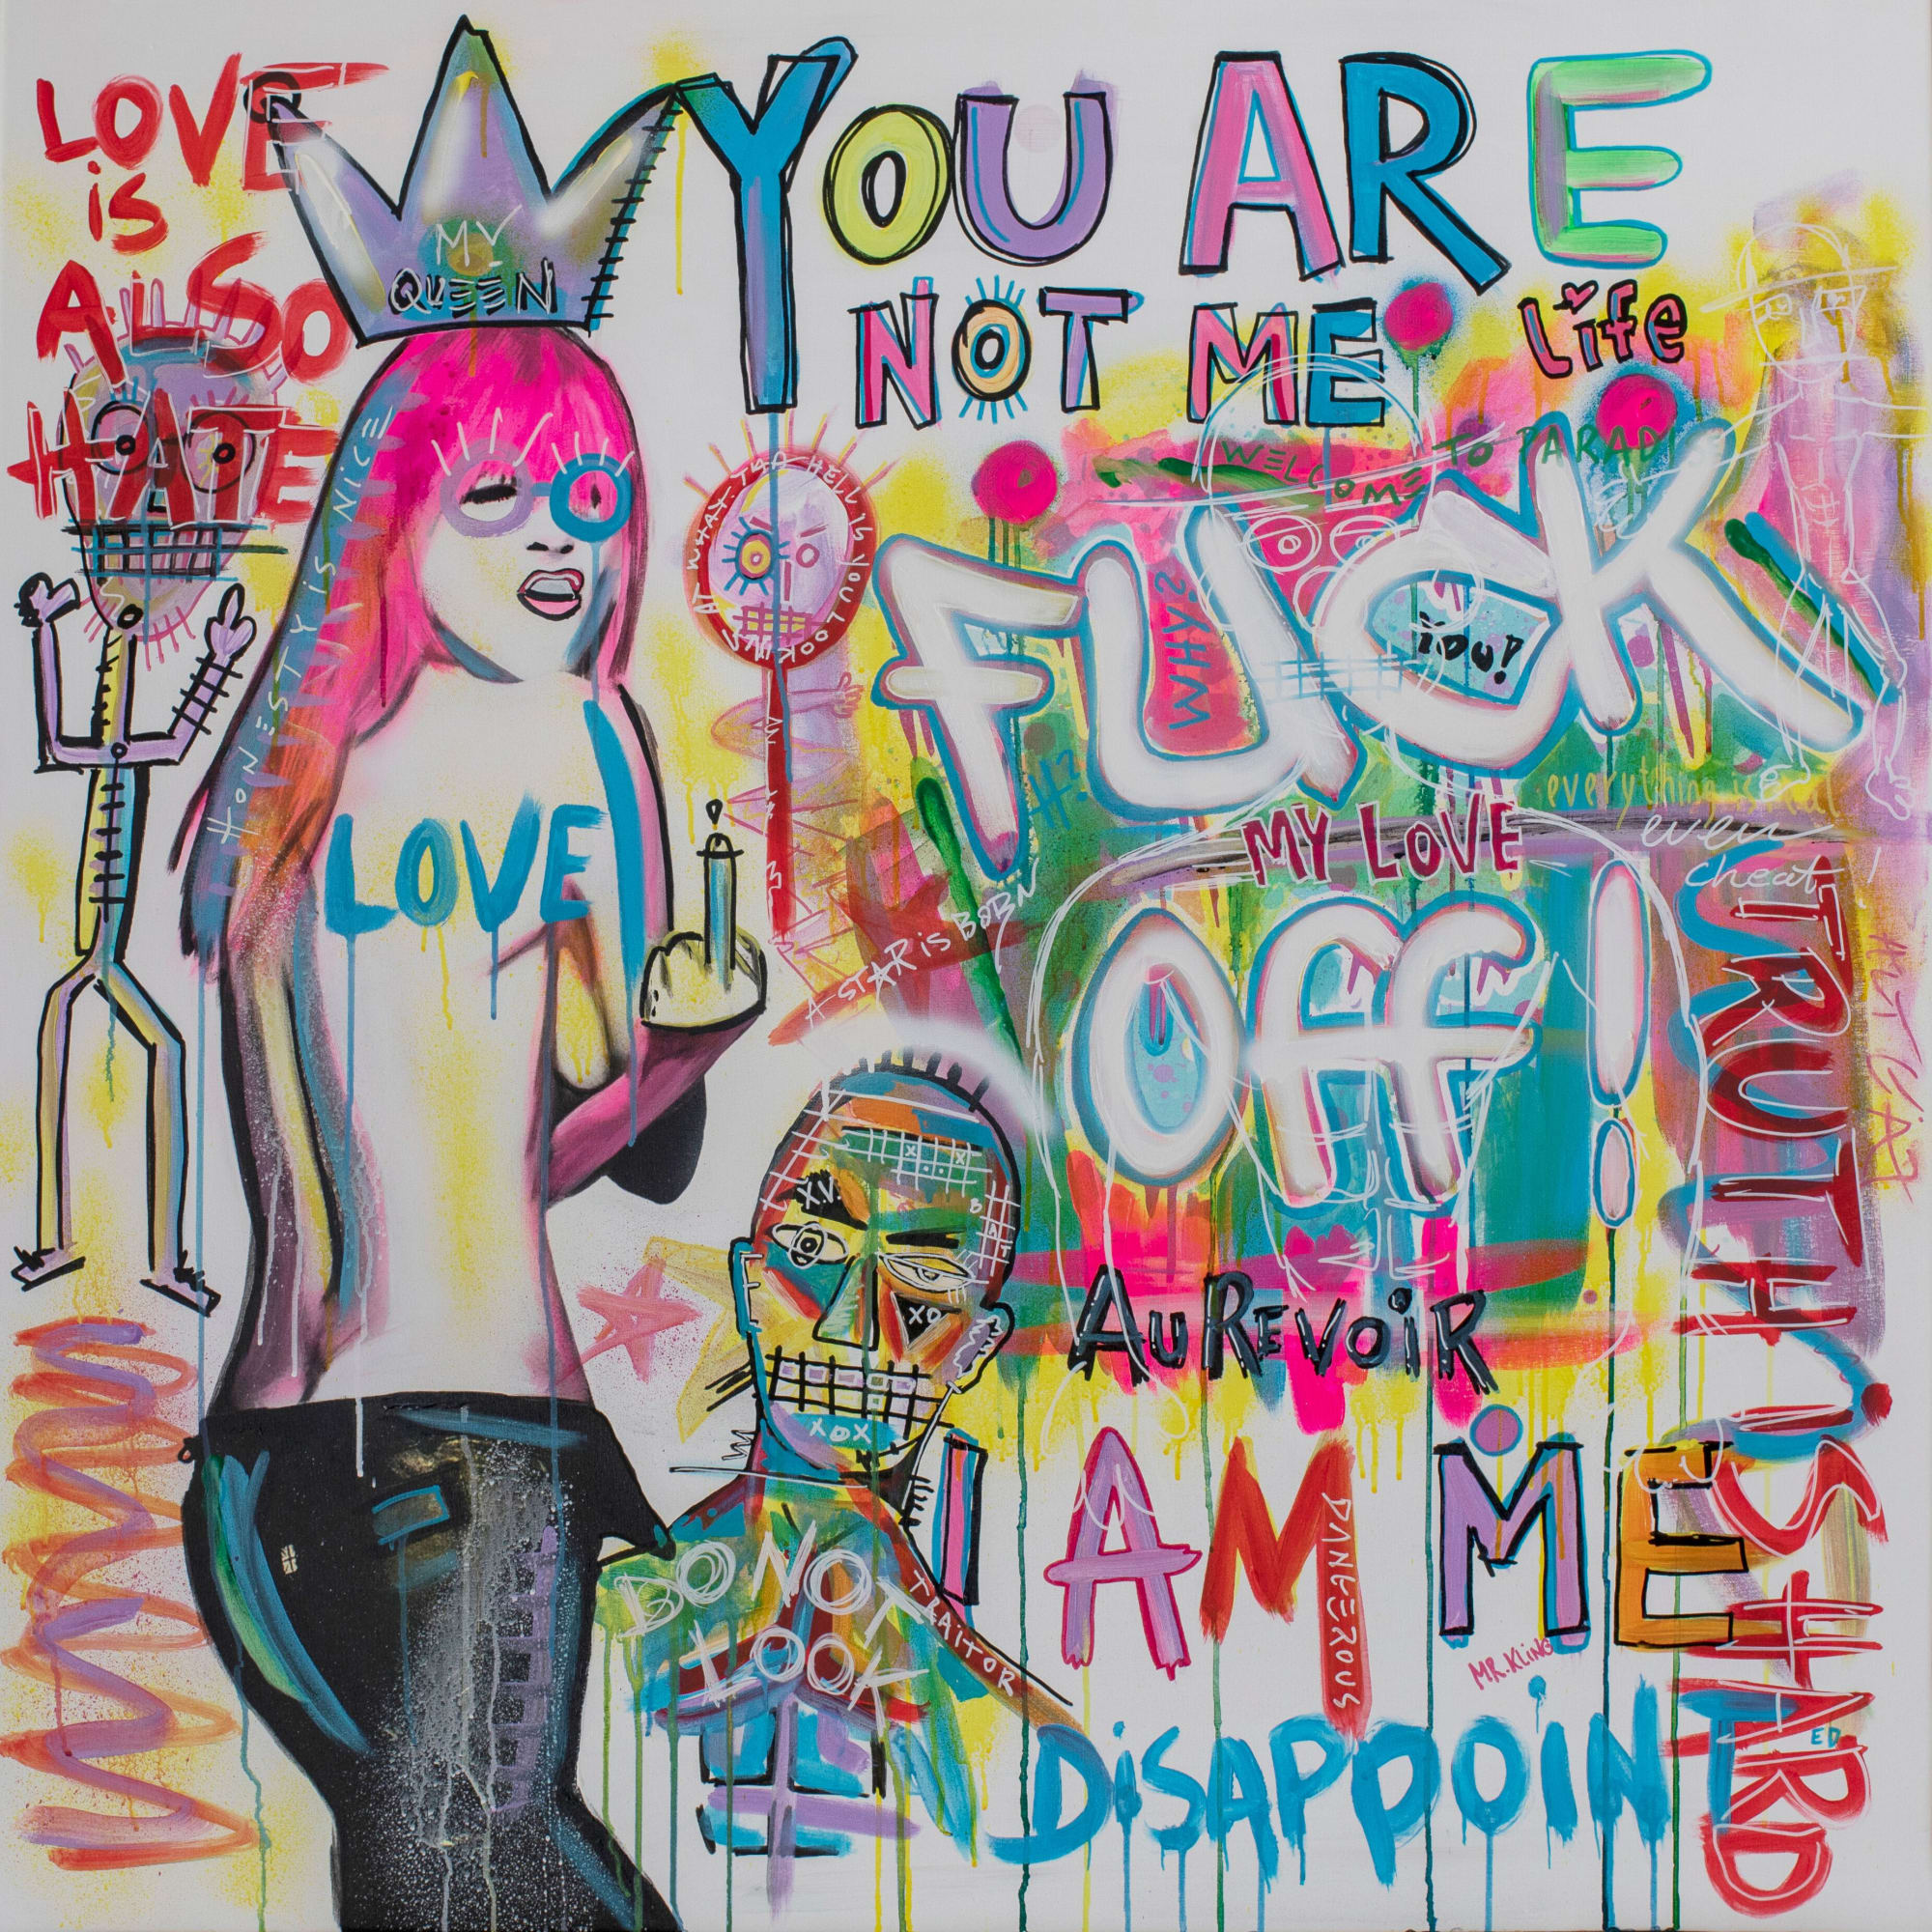 LOVE
is
ALSO
HATE
MY
QUEEN
YOU ARE
NOT ME
Life
HONESTY iS NiCE
AT WHAT THE HELL iS YOU LOOKiNG
WELCOME TO PARADI
FUCK
WHY?
iou!
H?
MY LOVE
everything is
even
cheat!
LOVE
A STAR iS BORN
Off!
TRUTH iS HARD
XV
XO
XOX
AUREVOiR
I AM ME
DANGEROUS
MR.KLiNG
DO NOT
LOOK
TRAiTOR
DiSAPPOiNT
ED